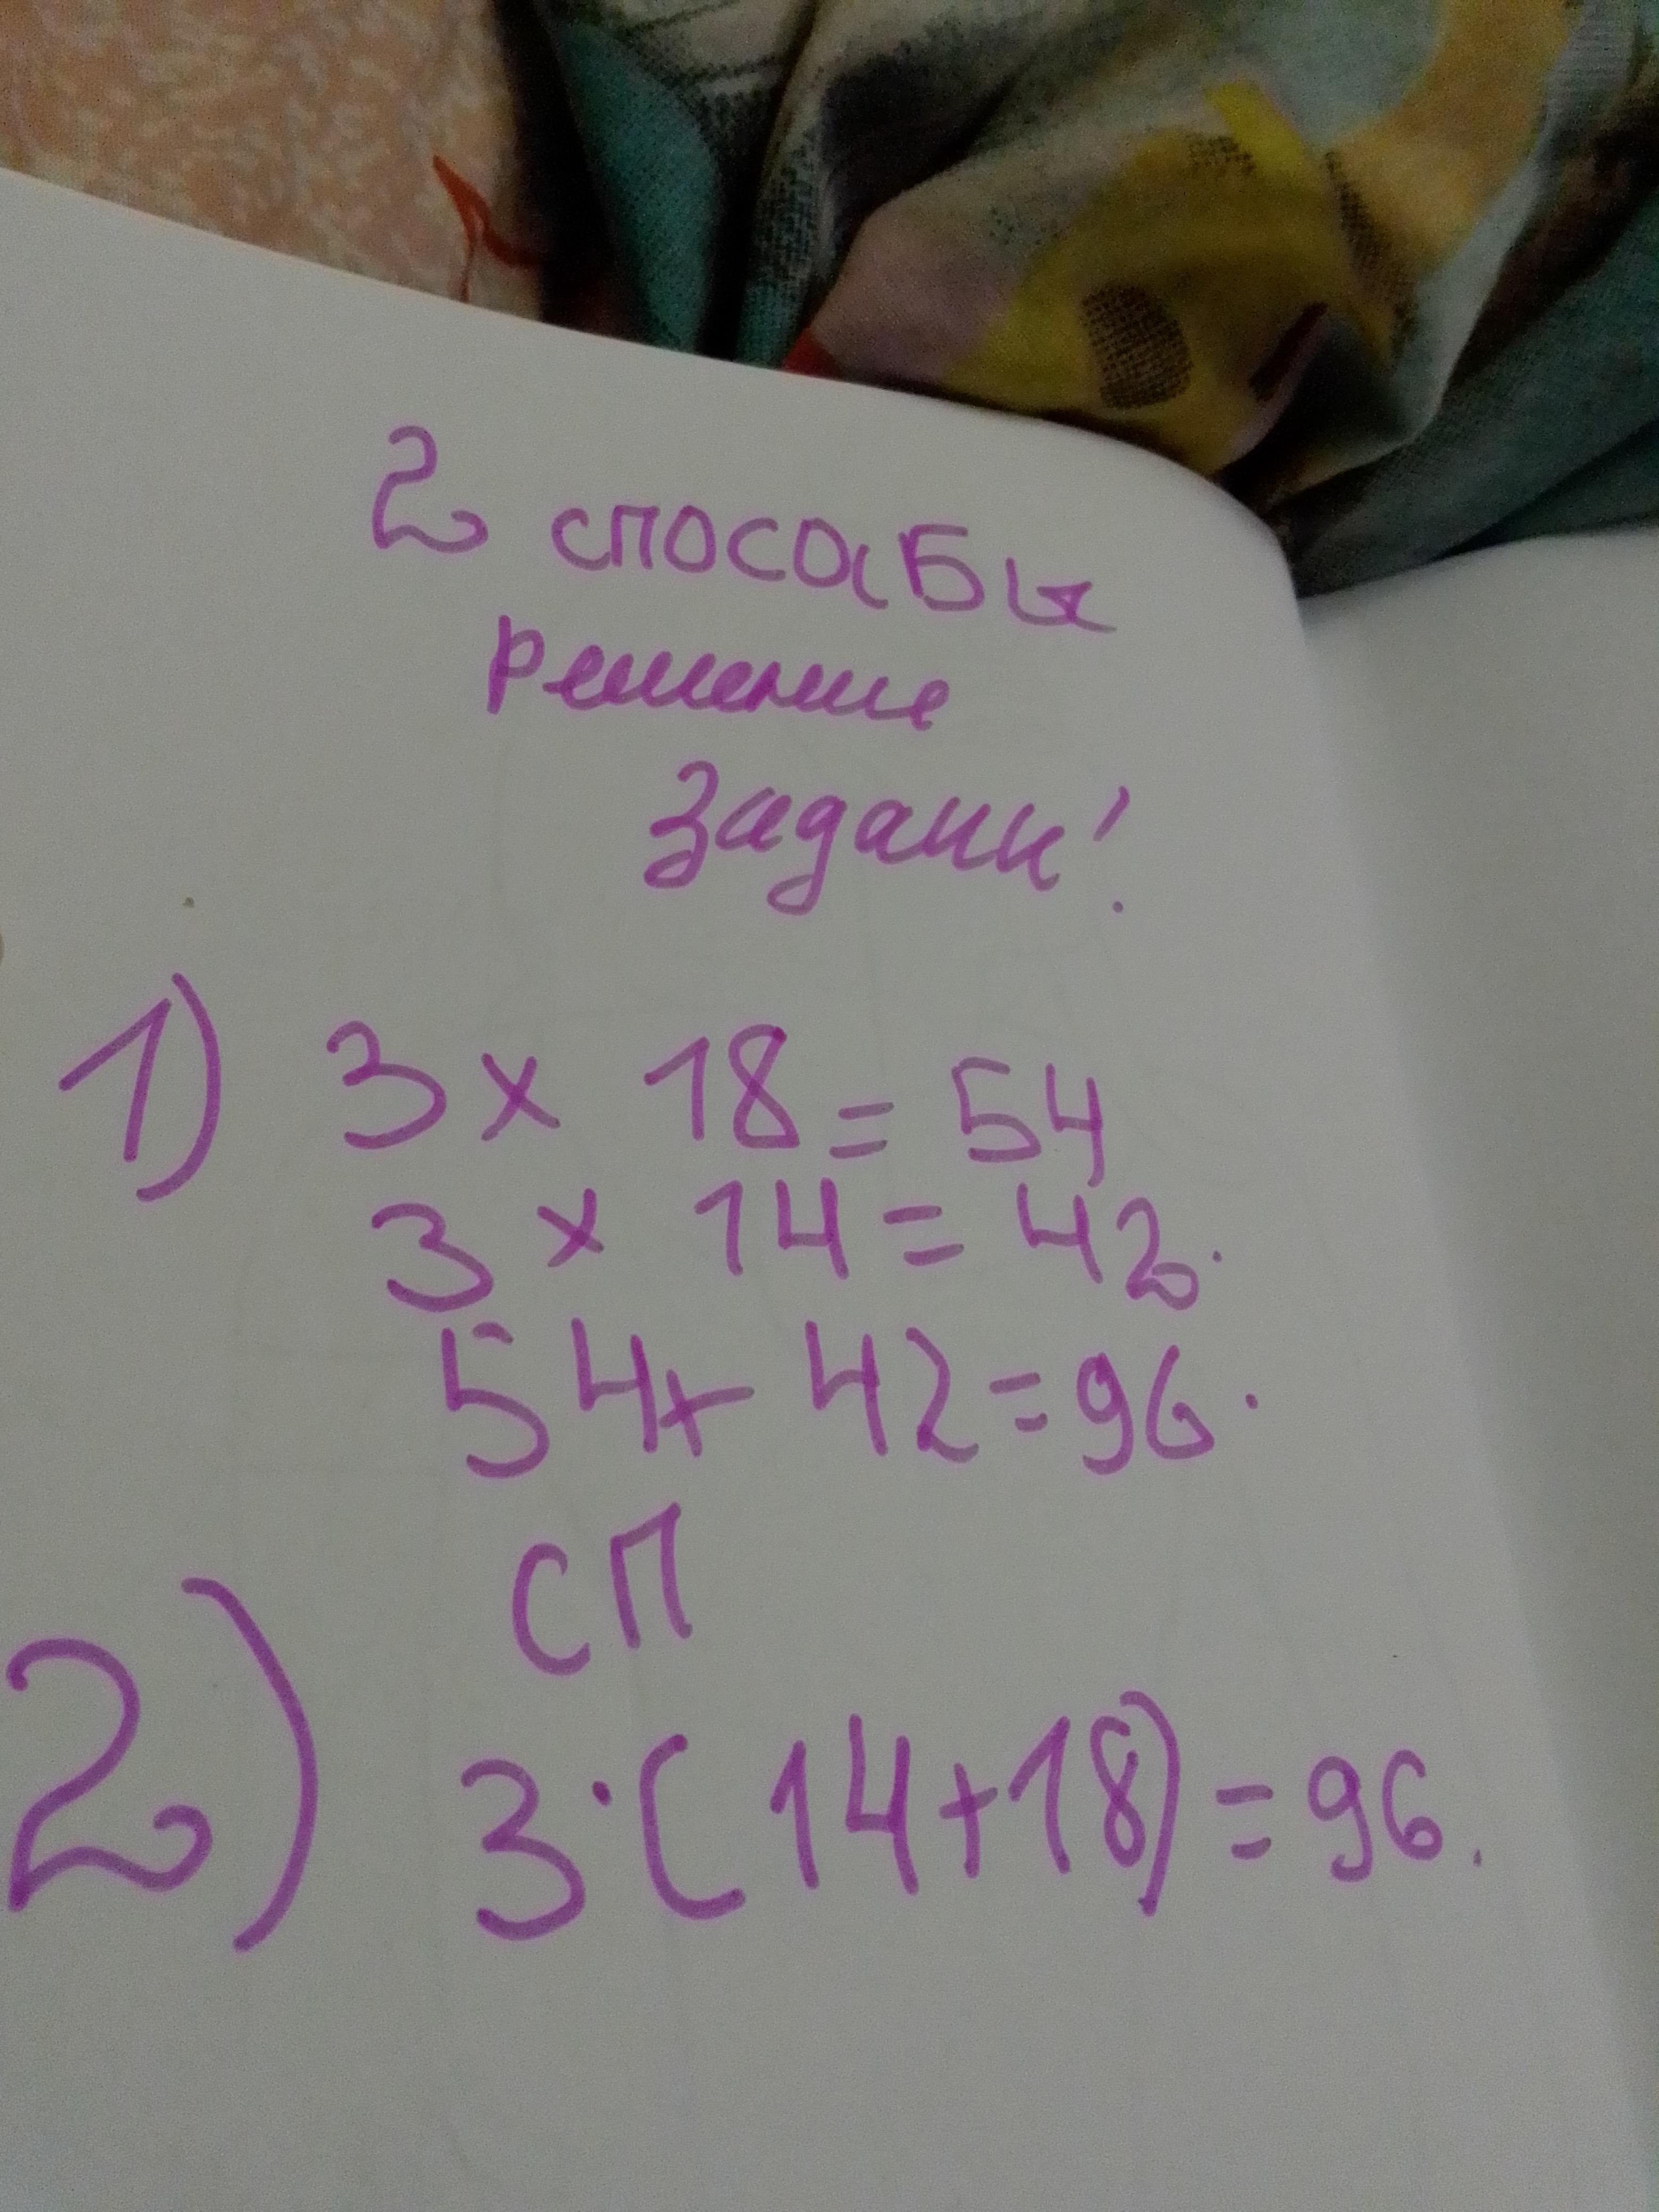 2 способы
решение
задани!
1) 3 x 18 = 54
3 x 14 = 42.
54 + 42 = 96.
СП
2) 3 · (14+18) = 96.